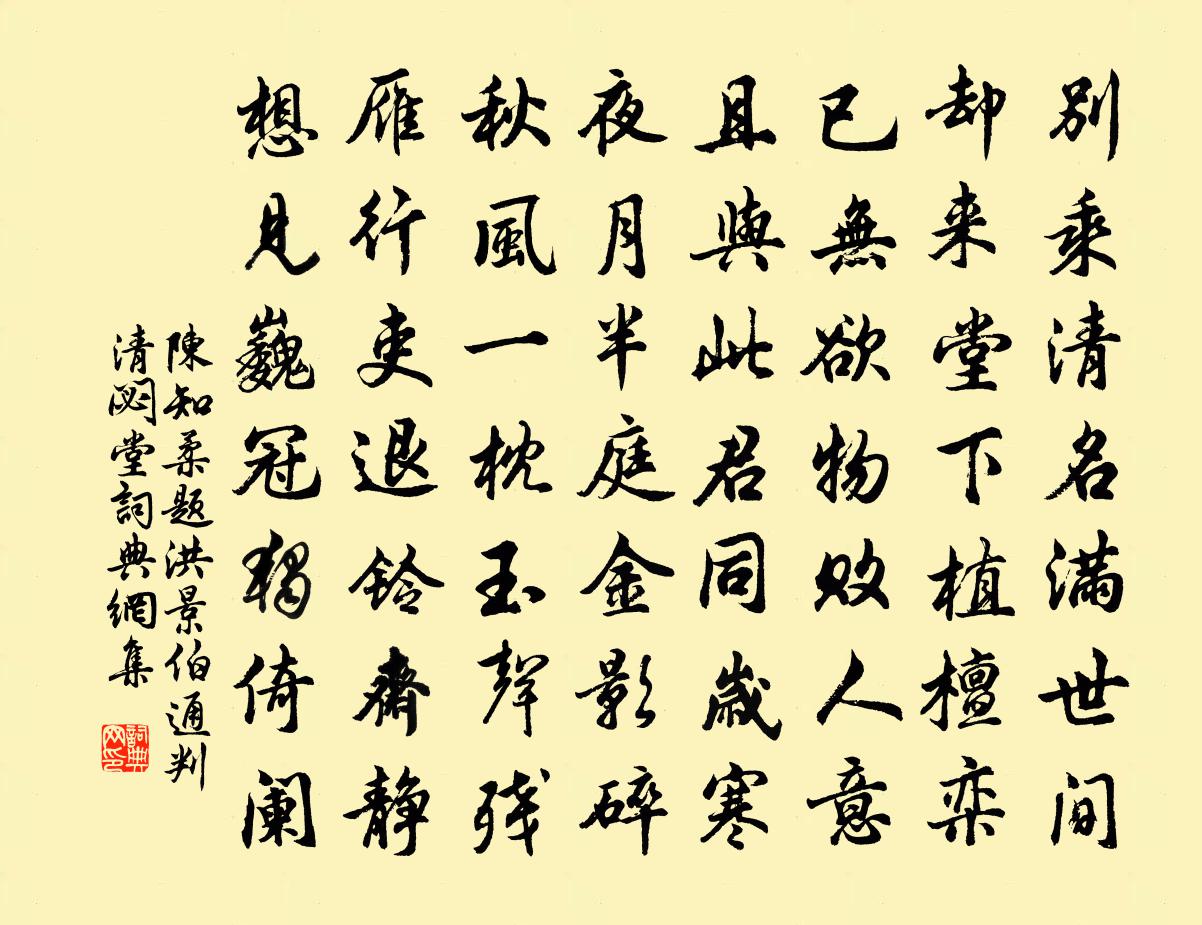 別乘清名满世间
却来堂下植檀栾
已無欲物败人意
且與此君同歲寒
夜月半庭金影碎
秋風一枕玉聲残
雁行吏退鈴齋静
想見巍冠獨倚阑
陳知柔題洪景伯通判
清閟堂詞典網集
詞典网印